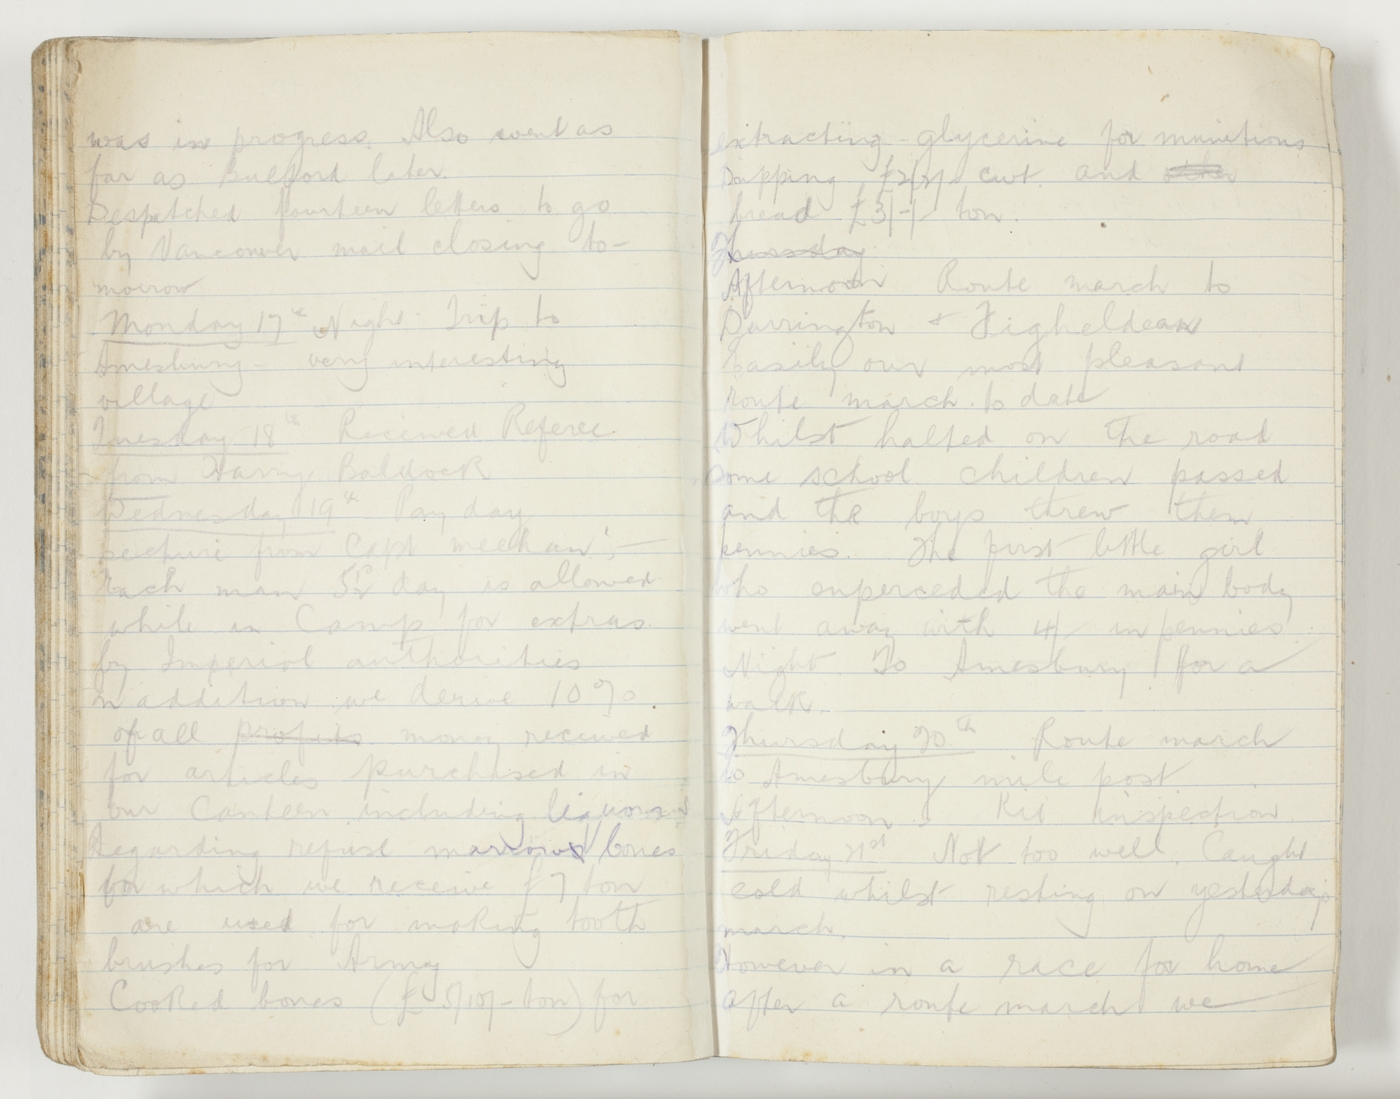 was in progress. Also went as
far as Bulford later.
Despatched fourteen letters to go
by Vancouver mail closing to-
morrow
Monday 17th Night. Trip to
Amesbury - very interesting
village
Tuesday 18th Received Referee
from Harry Baldock
Wednesday 19th Pay day
Lecture from Capt Meekan:-
Each man 5½d day is allowed
while in Camp for extras
by Imperial authorities
In addition we derive 10%
of all profits money received
for articles purchased in
our Canteen including liquors
Regarding refuse marrows bones
for which we receive £7 ton
are used for making tooth
brushes for Army
Cooked bones (£5/10/- ton) for
extracting glycerine for munitions
Dripping £2/2/- cwt. and other
bread £3/-/- ton.
Thursday
Afternoon Route march to
Durrington & Figheldean
Easily our most pleasant
route march to date
Whilst halted on the road
some school children passed
and the boys threw them
pennies. The first little girl
who superceded the main body
went away with 4/- in pennies
Night To Amesbury for a
walk.
Thursday 20th Route march
to Amesbury mile post
Afternoon. Kit inspection
Friday 21st Not too well. Caught
cold whilst resting on yesterdays
march.
However in a race for home
after a route march we